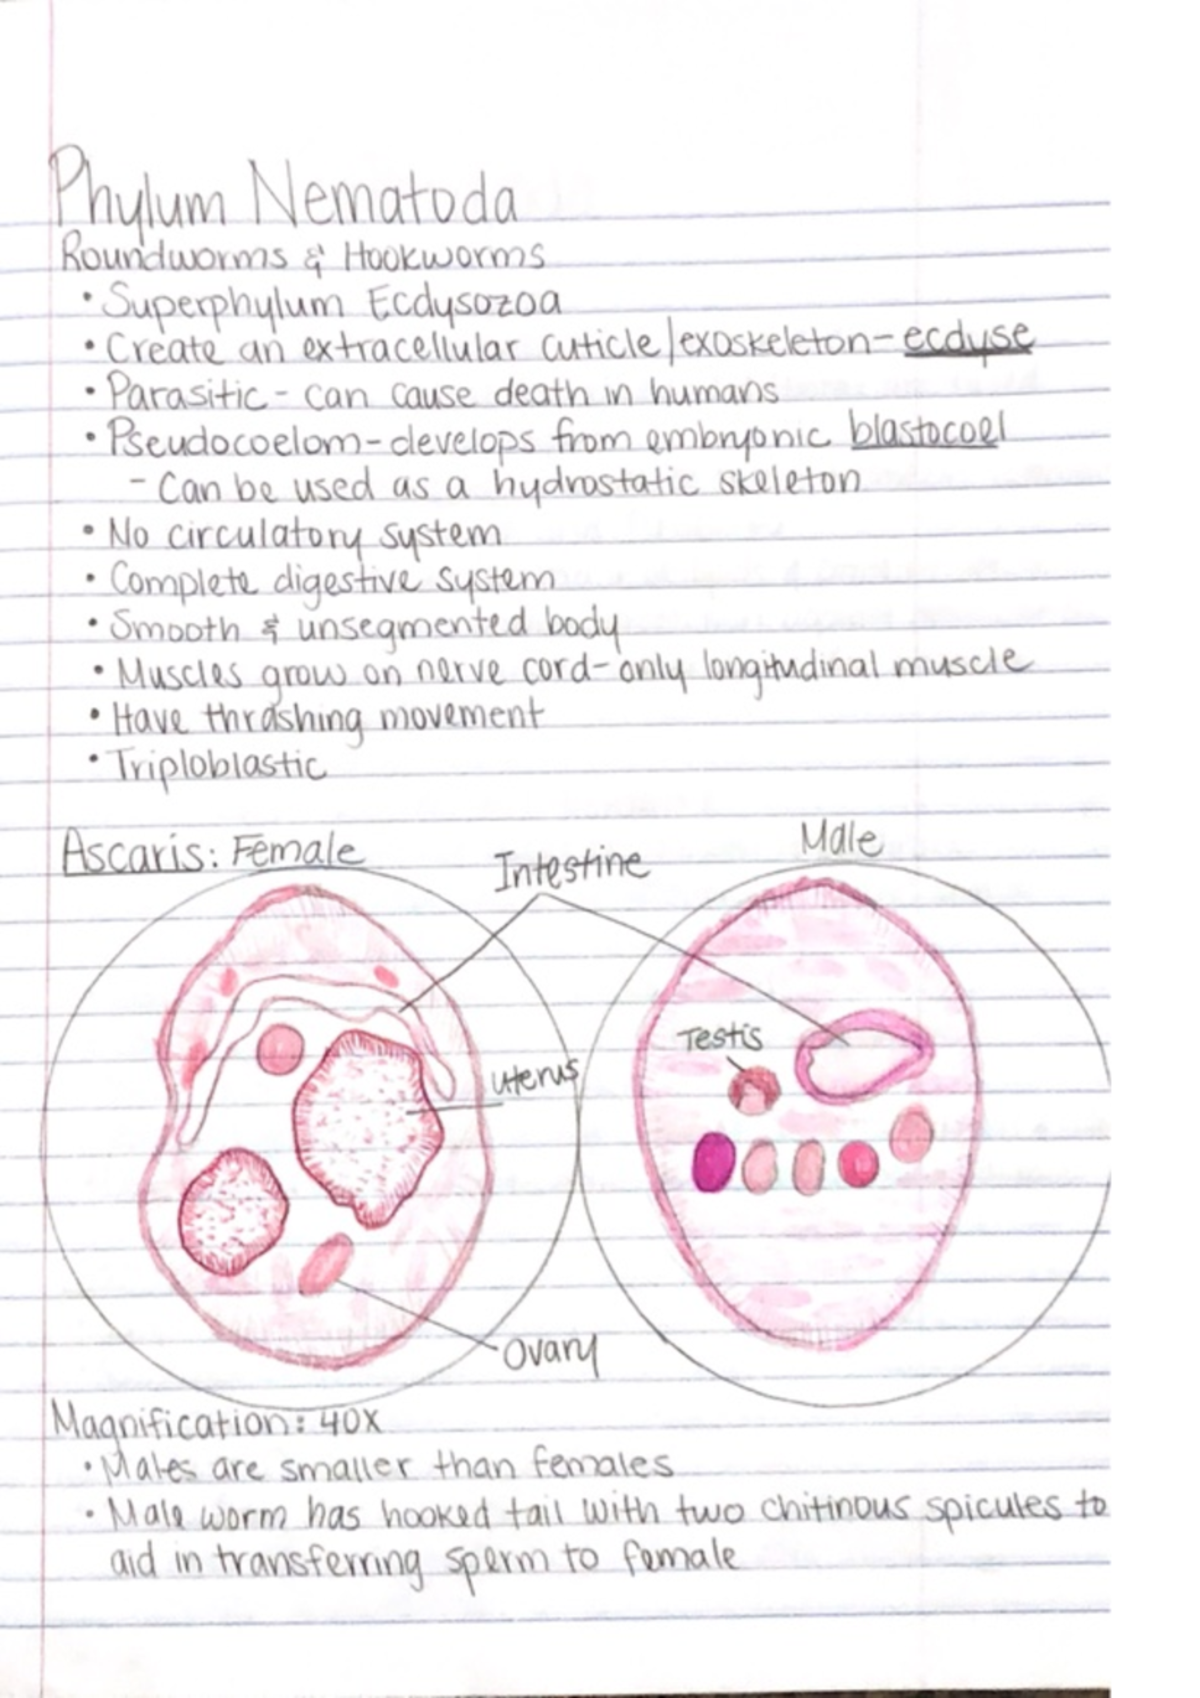 Phylum Nematoda
Roundworms & Hookworms
• Superphylum Ecdysozoa
• Create an extracellular cuticle/exoskeleton- ecdyse
• Parasitic - can cause death in humans
• Pseudocoelom-develops from embryonic blastocoel
- Can be used as a hydrostatic skeleton
• No circulatory system
• Complete digestive system
• Smooth & unsegmented body
• Muscles grow on nerve cord-only longitudinal muscle
• Have thrashing movement
• Triploblastic
Ascaris: Female
Intestine
Male
Testis
uterus
Ovary
Magnification: 40x
• Males are smaller than females
• Male worm has hooked tail with two chitinous spicules to
aid in transferring sperm to female